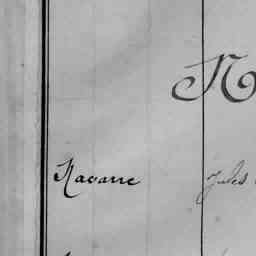 N
Navarre Jules